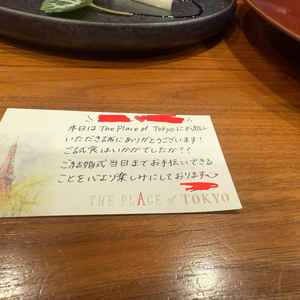 本日は The Place of Tokyo にお越し
いただき誠にありがとうございます！
ご試食はいかがでしたか？？
ご結婚式当日までお手伝いできる
ことを心より楽しみにしております
THE PLACE of TOKYO